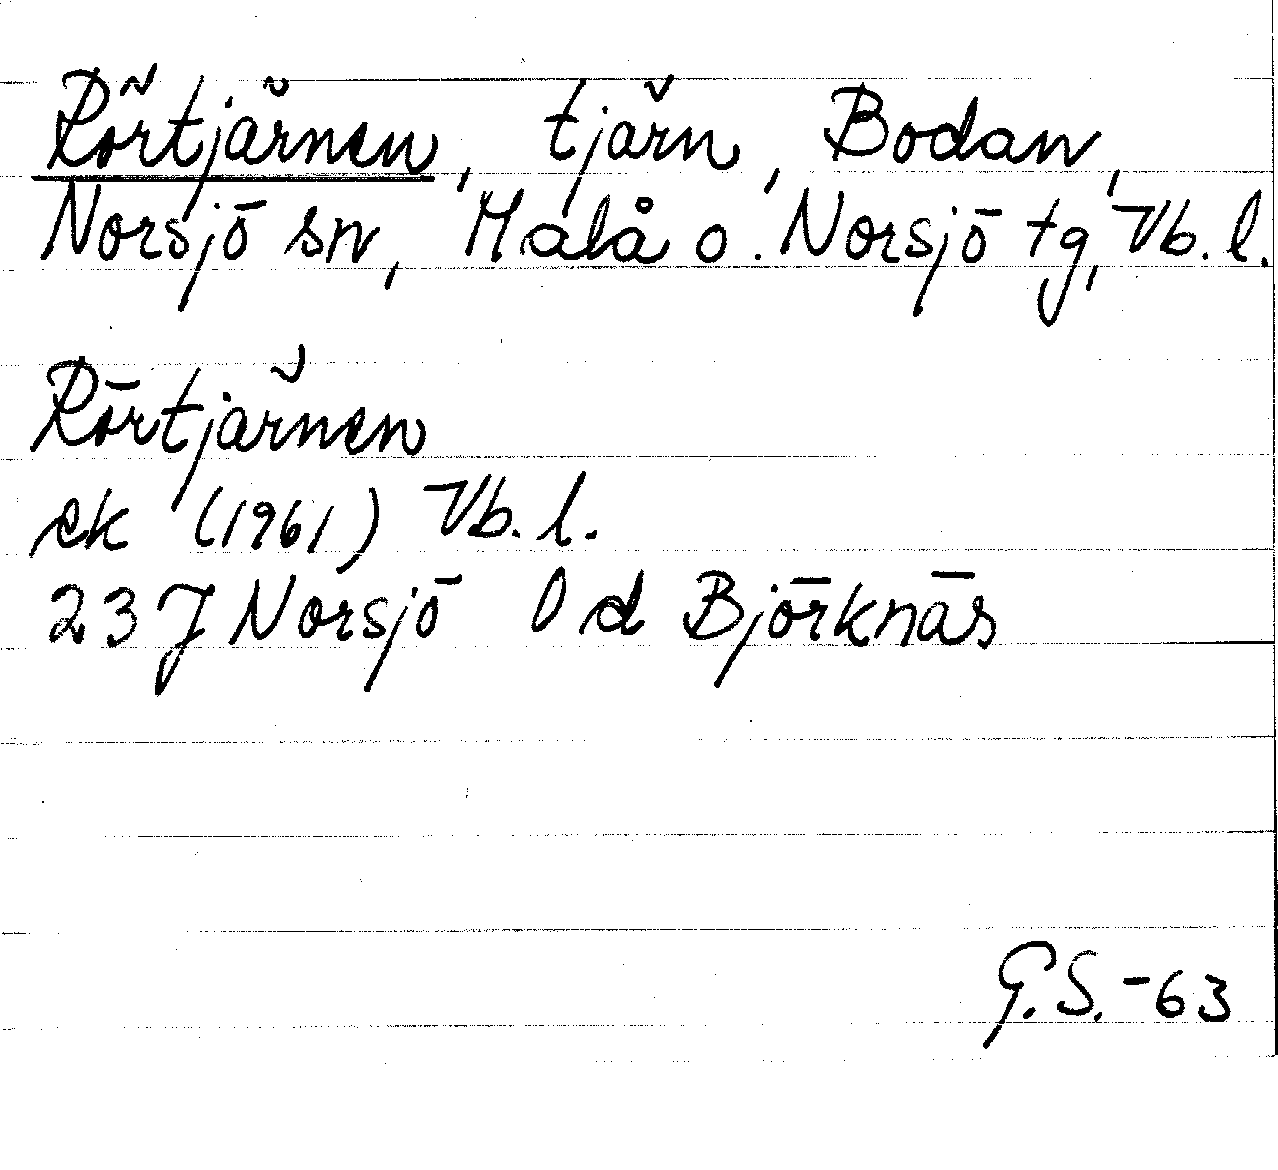 Rörtjärnen, tjärn, Bodan,
Norsjö sn, Malå o. Norsjö tg, Vb. l.
Rörtjärnen
ek (1961) Vb. l.
23 J Norsjö 0 d Björknäs
G.S. -63